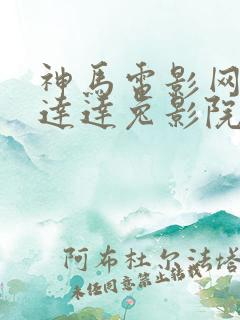 神马电影网
达达兔影院
阿布杜尔法塔
未经同意禁止转载